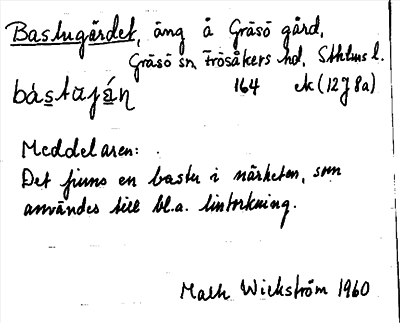 Bastugärdet, äng å Gräsö gård,
Gräsö sn Frösåkers hd, Sthlms l.
164 ek (12J 8a)
Meddelaren:
Det finns en bastu i närheten, som
användes till bl.a. lintorkning.
Math Wickström 1960